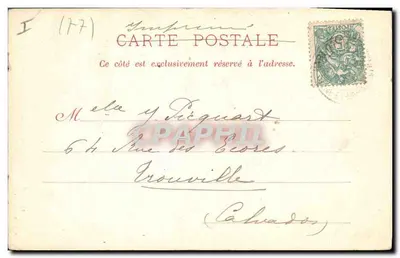 I (77)
Imprimé
CARTE POSTALE
Ce côté est exclusivement réservé à l'adresse.
Mela y Picquart
64 Rue des Ecores
Trouville
(Calvados)
PAPFIL